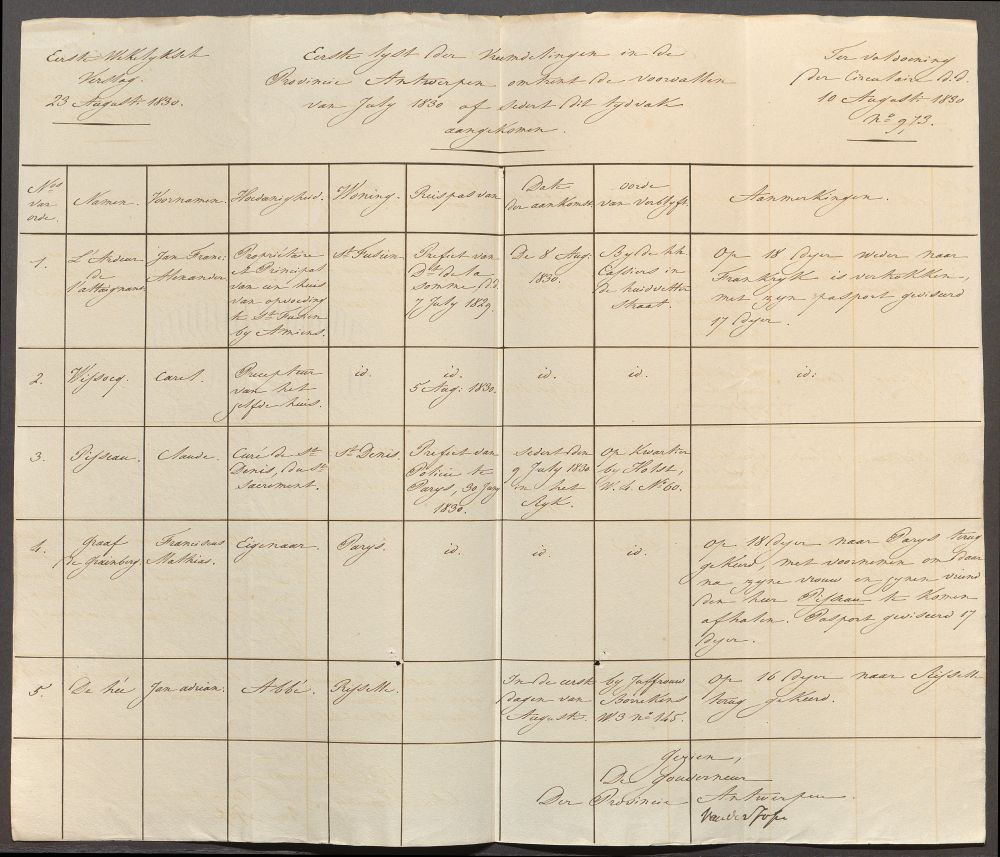 Eerste Wekelyksch
Verslag.
23 Augusti 1830.
Eerste lyst der Vreemdelingen in de
Provincie Antwerpen omtrent de voorvallen
van July 1830 of sedert dit tydvak
aangekomen.
Ter voldoening
der Circulaire d.d.
10 Augusti 1830
No 913.
Nos
van
orde.
Namen.
Voornamen.
Hoedanigheid.
Woning.
Reispas van
Date
der aankomst.
oorde
van verblyf.
Aanmerkingen.
1.
L'Ardeur
de
Jan Franc.
Alexander
Propriétaire
et Principal
van een huis
van opvoeding
te St Fusien
by Amiens.
St Fusien.
Prefect van
Dt de la
Somme, d.d.
7 July 1829.
De 8 Aug:
1830.
By de hh.
Cassiers in
de huidvetter
straat.
Op 18 dezer weder naar
Frankryk is vertrokken,
met zyn pasport geviseerd
17 dezer.
2.
Wissocq.
Carel.
Precepteur
van het
zelfde huis.
id.
id.
5 Aug: 1830.
id.
id.
id:
3.
Pisseau.
Claude.
Curé de St
Denis, du St
Sacrement.
St Denis.
Prefect van
Policie te
Parys, 30 Juny
1830.
Sedert den
9 July 1830
in het
Ryk.
Op kwartier
by Holst,
W. 4. No 60.
4.
Graaf
de Graenberg
Franciscus
Mathias.
Eigenaar.
Parys.
id.
id.
id.
Op 18 dezer naar Parys terug
gekeerd, met voornemen om daar
na zyne vrouw en zynen vriend
den heer Pisseau te komen
afhalen. Pasport geviseerd 17
dezer.
5.
De hée
Jan adrian.
Abbé.
Ryssele.
In de eerste
dagen van
Augusti.
by Juffrouw
Bovekens
W. 3 no 145.
Op 16 dezer naar Ryssele
terug gekeerd.
Gezien,
De Gouverneur
Der Provincie Antwerpen.